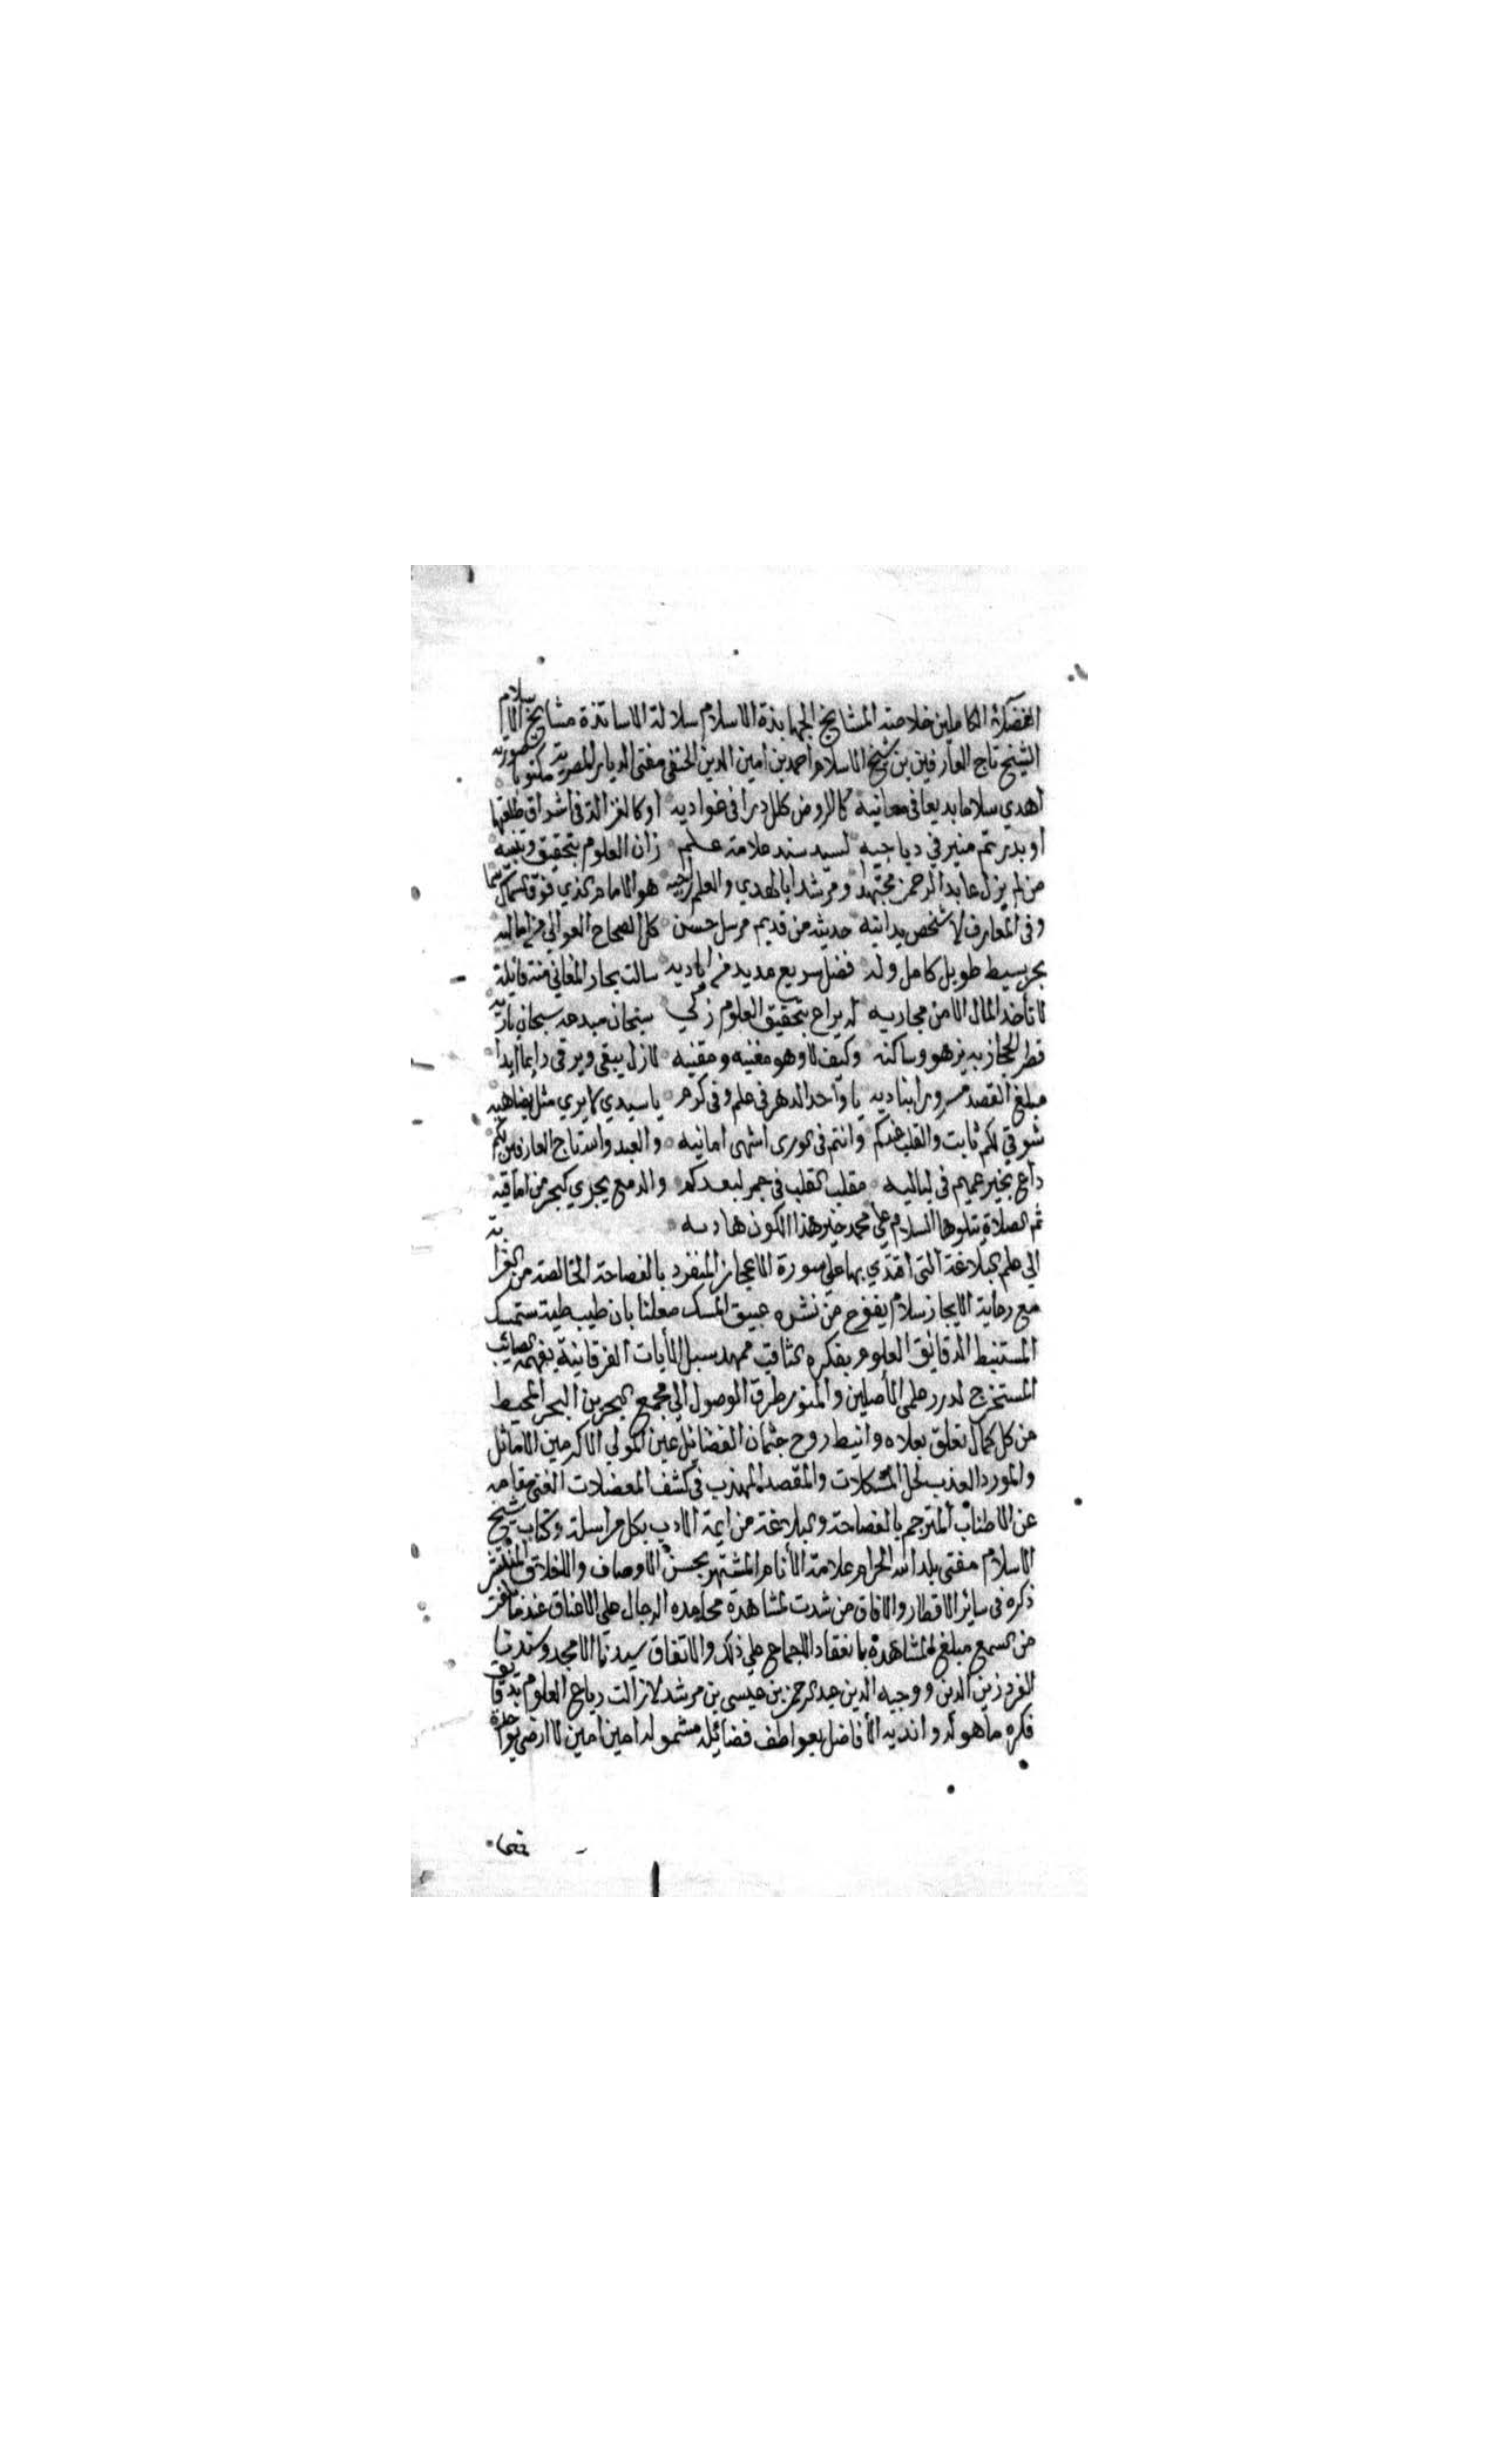 الفضلاء الكاملين خلاصة المشايخ الجهابذة الاسلام سلالة الاساتذة مشايخ الاسلام
الشيخ تاج العارفين بن شيخ الاسلام احمد بن امين الدين الحنفي مفتي الديار المصرية مكتوبا صورته
اهدي سلاما بديعا في معانيه كالروض كلل درا في غواديه او كالغزالة في اشراق طلعتها
او بدر تم منير في دياجيه لسيد سند علامة علم زان العلوم بتحقيق وتنبيه
من لم يزل عابد الرحمن مجتهدا ومرشدا بالهدي والعلم هو الامام الذي فوق السماك سما
وفي المعارف لا شخص يدانيه حديثه من قديم مرسل حسن كل الصحاح العوالي من اماليه
بحر بسيط طويل كامل وله فضل سريع مديد من اياديه سالت بحار المعاني منه قايلة
لا تاخذ المال الا من مجاريه له يراع بتحقيق العلوم زكي سبحان مبدعه سبحان باريه
قطر الحجاز به يزهو وساكنه وكيف لا وهو مغنيه ومقنيه لا زل يبقى ويرقى دايما ابدا
مبلغ القصد مسرورا بناديه يا واحد الدهر في علم وفي كرم يا سيدي لا يري مثل يضاهيه
شوقي لكم ثابت والقلب عندكم وانتم في الورى اشهى امانيه والعبد والله تاج العارفين لكم
داع بخير عميم في لياليه مقلب القلب في جمر لبعدكم والدمع يجري كبحر من اماقيه
ثم الصلاة يتلوها السلام على محمد خير هذا الكون هاديه
الي علم البلاغة التي اقتدي بها علي سورة الاعجاز المنفرد بالفصاحة الخالصة من الغرابة
مع رعاية الايجاز سلام يفوح من نشره عبيق المسك معلنا بان طيب طيه ستمسك
المستنبط لدقايق العلوم بفكره الثاقب ممهد سبل الأيات الفرقانية بفهمه الصائب
المستخرج لدرر علمي الأصلين والمنور طرق الوصول الي مجمع البحرين البحر المحيط
من كل كمال تعلق بعلاه وانيط روح جثمان الفضايل عين الموالي الاكرمين الاماثل
والمورد العذب لحل المشكلات والمقصد المهذب في كشف المعضلات الغني مقامه
عن الاطناب المترجم بالفصاحة والبلاغة من ايمة الادب بكل مراسلة وكتاب شيخ
الاسلام مفتي بلد الله الحرام علامة الأنام المشتهر بحسن الاوصاف والاخلاق المنتشر
ذكره في ساير الاقطار والافاق من شدت لمشاهدة محامده الرجال علي الاعناق عندما
من السمع مبلغ المشاهدة بانعقاد الاجماع علي ذلك والاتفاق سيدنا الامجد وسندنا
الفرد زين الدين ووجيه الدين عبد الرحمن بن عيسى بن مرشد لا زالت رباع العلوم بدقايق
فكره ماهولة واندية الأفاضل بعواطف فضايله مشمولة امين امين لا ارضى بواحدة